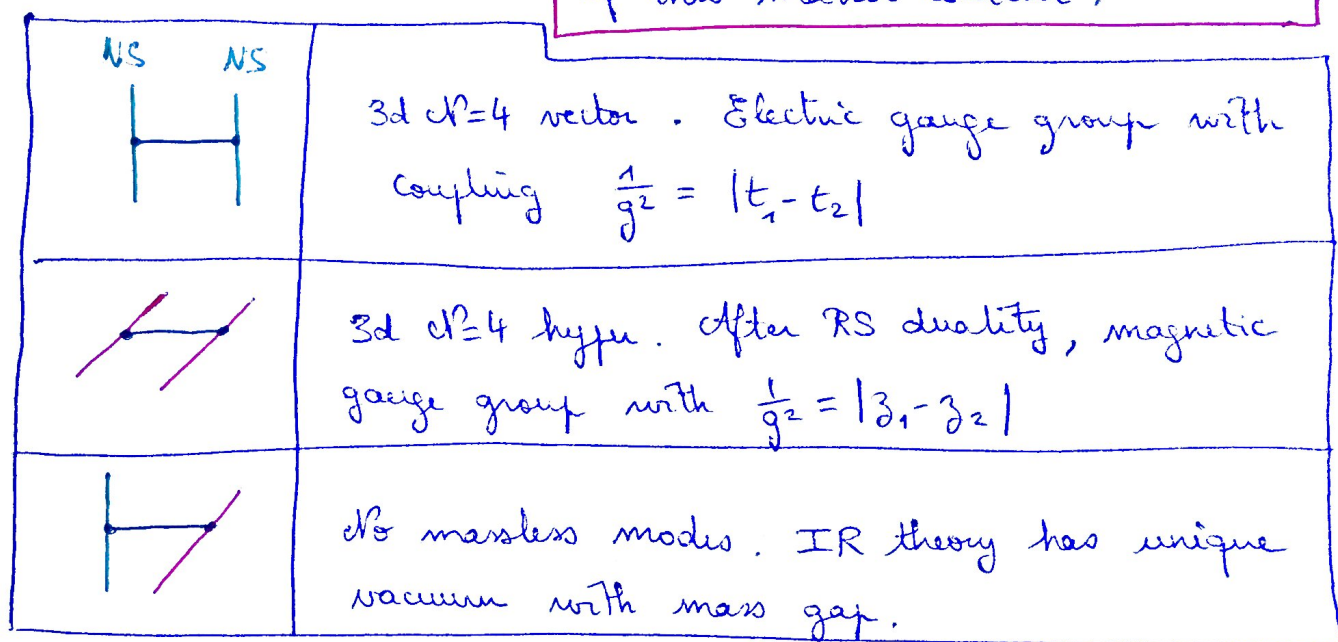 NS NS
3d N=4 vector. Electric gauge group with
coupling 1/g² = |t₁-t₂|
3d N=4 hyper. After RS duality, magnetic
gauge group with 1/g² = |z₁-z₂|
No massless modes. IR theory has unique
vacuum with mass gap.